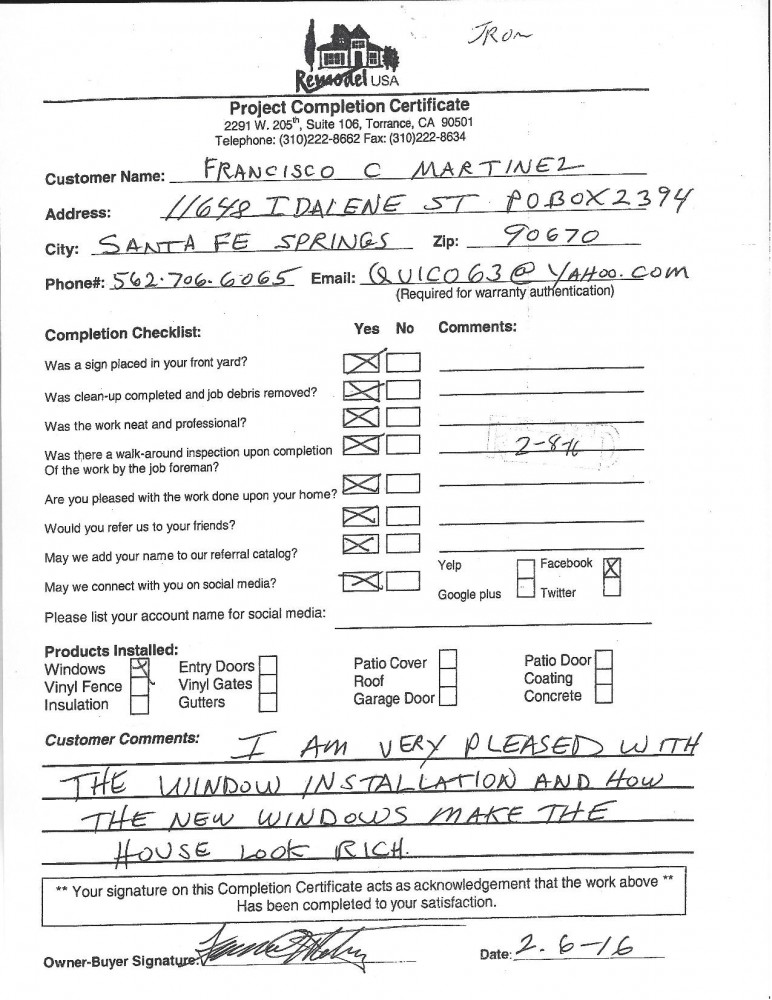 JRon
Remodel USA
Project Completion Certificate
2291 W. 205th, Suite 106, Torrance, CA 90501
Telephone: (310)222-8662 Fax: (310)222-8634
Customer Name: FRANCISCO C MARTINEZ
Address: 11648 IDALENE ST POBOX 2394
City: SANTA FE SPRINGS Zip: 90670
Phone#: 562-706-6065 Email: QUICO63@YAHOO.COM
(Required for warranty authentication)
Completion Checklist: Yes No Comments:
Was a sign placed in your front yard?
Was clean-up completed and job debris removed?
Was the work neat and professional?
Was there a walk-around inspection upon completion
Of the work by the job foreman?
2-8-16
Are you pleased with the work done upon your home?
Would you refer us to your friends?
May we add your name to our referral catalog?
Yelp Facebook
May we connect with you on social media?
Google plus Twitter
Please list your account name for social media:
Products Installed:
Windows Entry Doors Patio Cover Patio Door
Vinyl Fence Vinyl Gates Roof Coating
Insulation Gutters Garage Door Concrete
Customer Comments: I AM VERY PLEASED WITH
THE WINDOW INSTALLATION AND HOW
THE NEW WINDOWS MAKE THE
HOUSE LOOK RICH.
** Your signature on this Completion Certificate acts as acknowledgement that the work above **
Has been completed to your satisfaction.
Owner-Buyer Signature: Date: 2-6-16